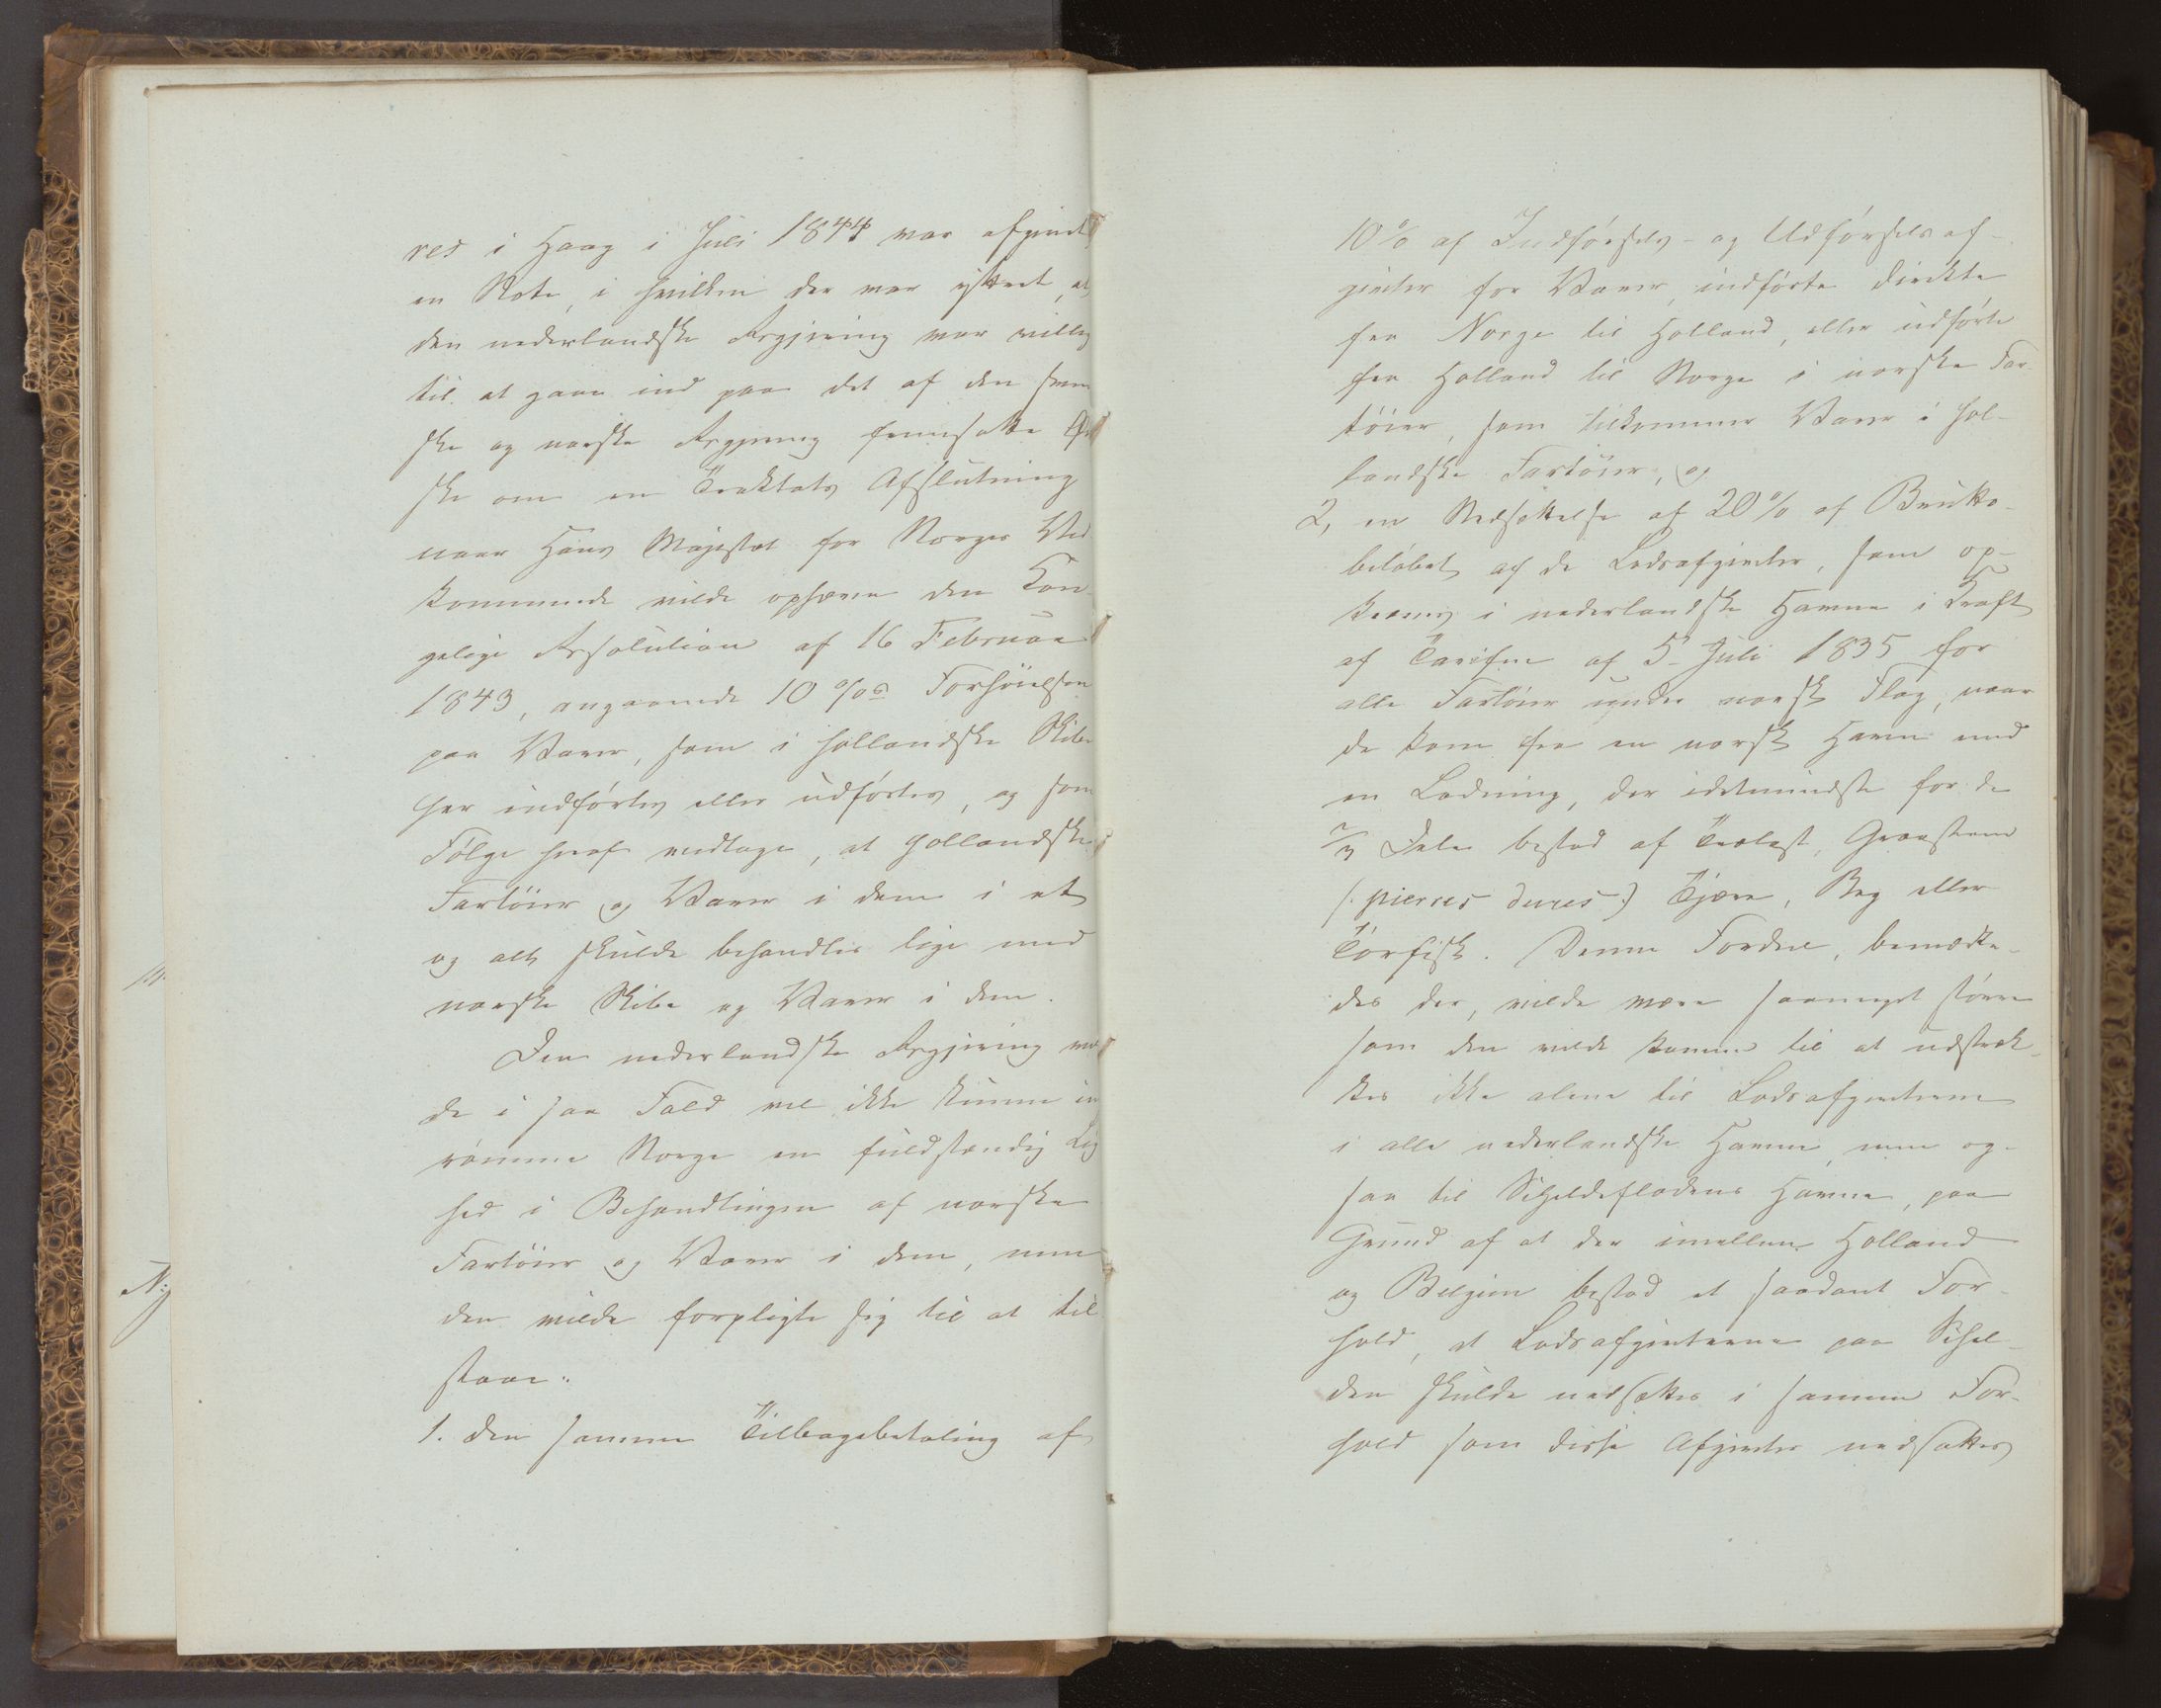 res i Haag i Juli 1844 var afgivet
en Note, i hvilken der var yttret, at
den nederlandske Regjering var villig
til at gaae ind paa det af den sven
ske og norske Regjering fremsatte Øn
ske om en Traktats Afslutning
naar Hans Majestæt for Norges Ved
kommende vilde ophæve den Kon
gelige Resolution af 16 Februar
1843, angaaende 10 % Forhöielsen
paa Varer, som i hollandske Skibe
her indførtes eller udførtes, og som
Følge heraf vedtage, at hollandske
Fartöier og Varer i dem i et
og alt skulde behandles lige med
norske Skibe og Varer i dem.
Den nederlandske Regjering vil
de i saa Fald vel ikke kunne ind
rømme Norge en fuldstændig Lig
hed i Behandlingen af norske
Fartöier og Varer i dem, men
den vilde forpligte sig til at til
staae:
1. den samme Tilbagebetaling af
10 % af Indførsels- og Udførselsaf-
givter for Varer, indførte direkte
fra Norge til Holland, eller udførte
fra Holland til Norge i norske Far-
töier, som tilkommer Varer i hol-
landske Fartöier, og
2, en Nedsættelse af 20 % af Brutto-
beløbet af de Lodsafgivter, som op-
kræves i nederlandske Havne i Kraft
af Tarifen af 5 Juli 1835 for
alle Fartöier under norsk Flag, naar
de kom fra en norsk Havn med
en Ladning, der idetmindste for de
2/3 Dele bestod af Trælast, Graasteen
(: pierres dures :) Tjære, Beg eller
Törfisk. Denne Fordeel, bemærke-
des der, vilde være saameget större
som den vilde komme til at udstræk-
kes ikke alene til Lodsafgivterne
i alle nederlandske Havne, men og-
saa til Scheldeflodens Havne, paa
Grund af at der imellem Holland
og Belgien bestod et saadant For-
hold, at Lodsafgivterne paa Schel-
den skulde nedsættes i samme For-
hold som disse Afgivter nedsattes